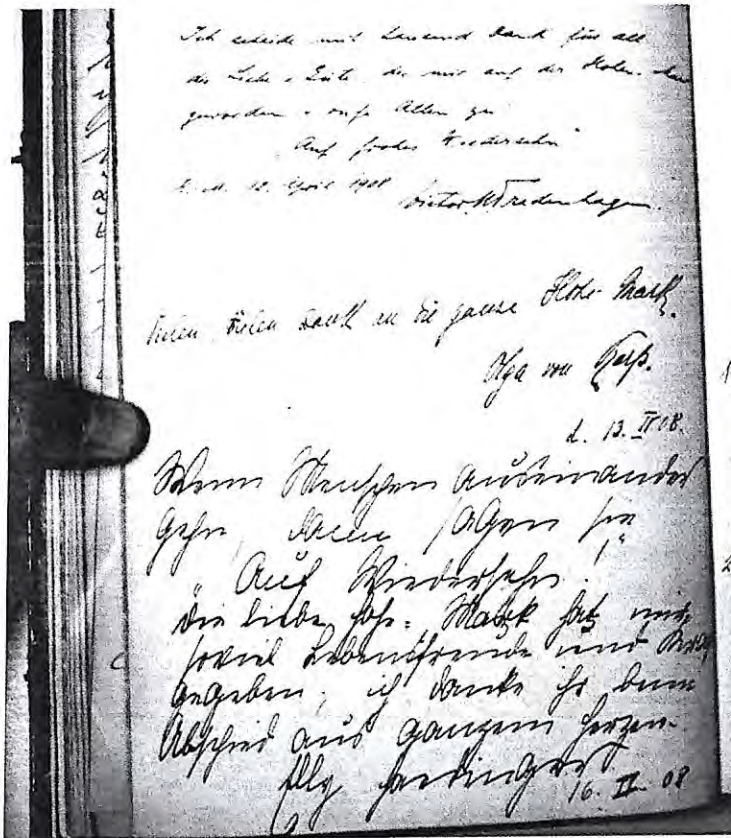 Ich scheide mit tausend Dank für all
die Liebe & Güte, die mir auf der Hohen
geworden & rufe Allen zu
"Auf frohes Wiedersehn"
10. April 1908
Victor Fredenhagen.
Vielen, vielen Dank an die ganze Hohe Mark.
Olga von
d. 13. 08.
Wenn Menschen auseinander
gehn, dann sagen sie
„Auf Wiedersehn!“
Die liebe Hohe-Mark hat mir
soviel Lebensfreude und
gegeben, ich danke ihr beim
Abschied aus ganzem Herzen.
Elly
16. 08